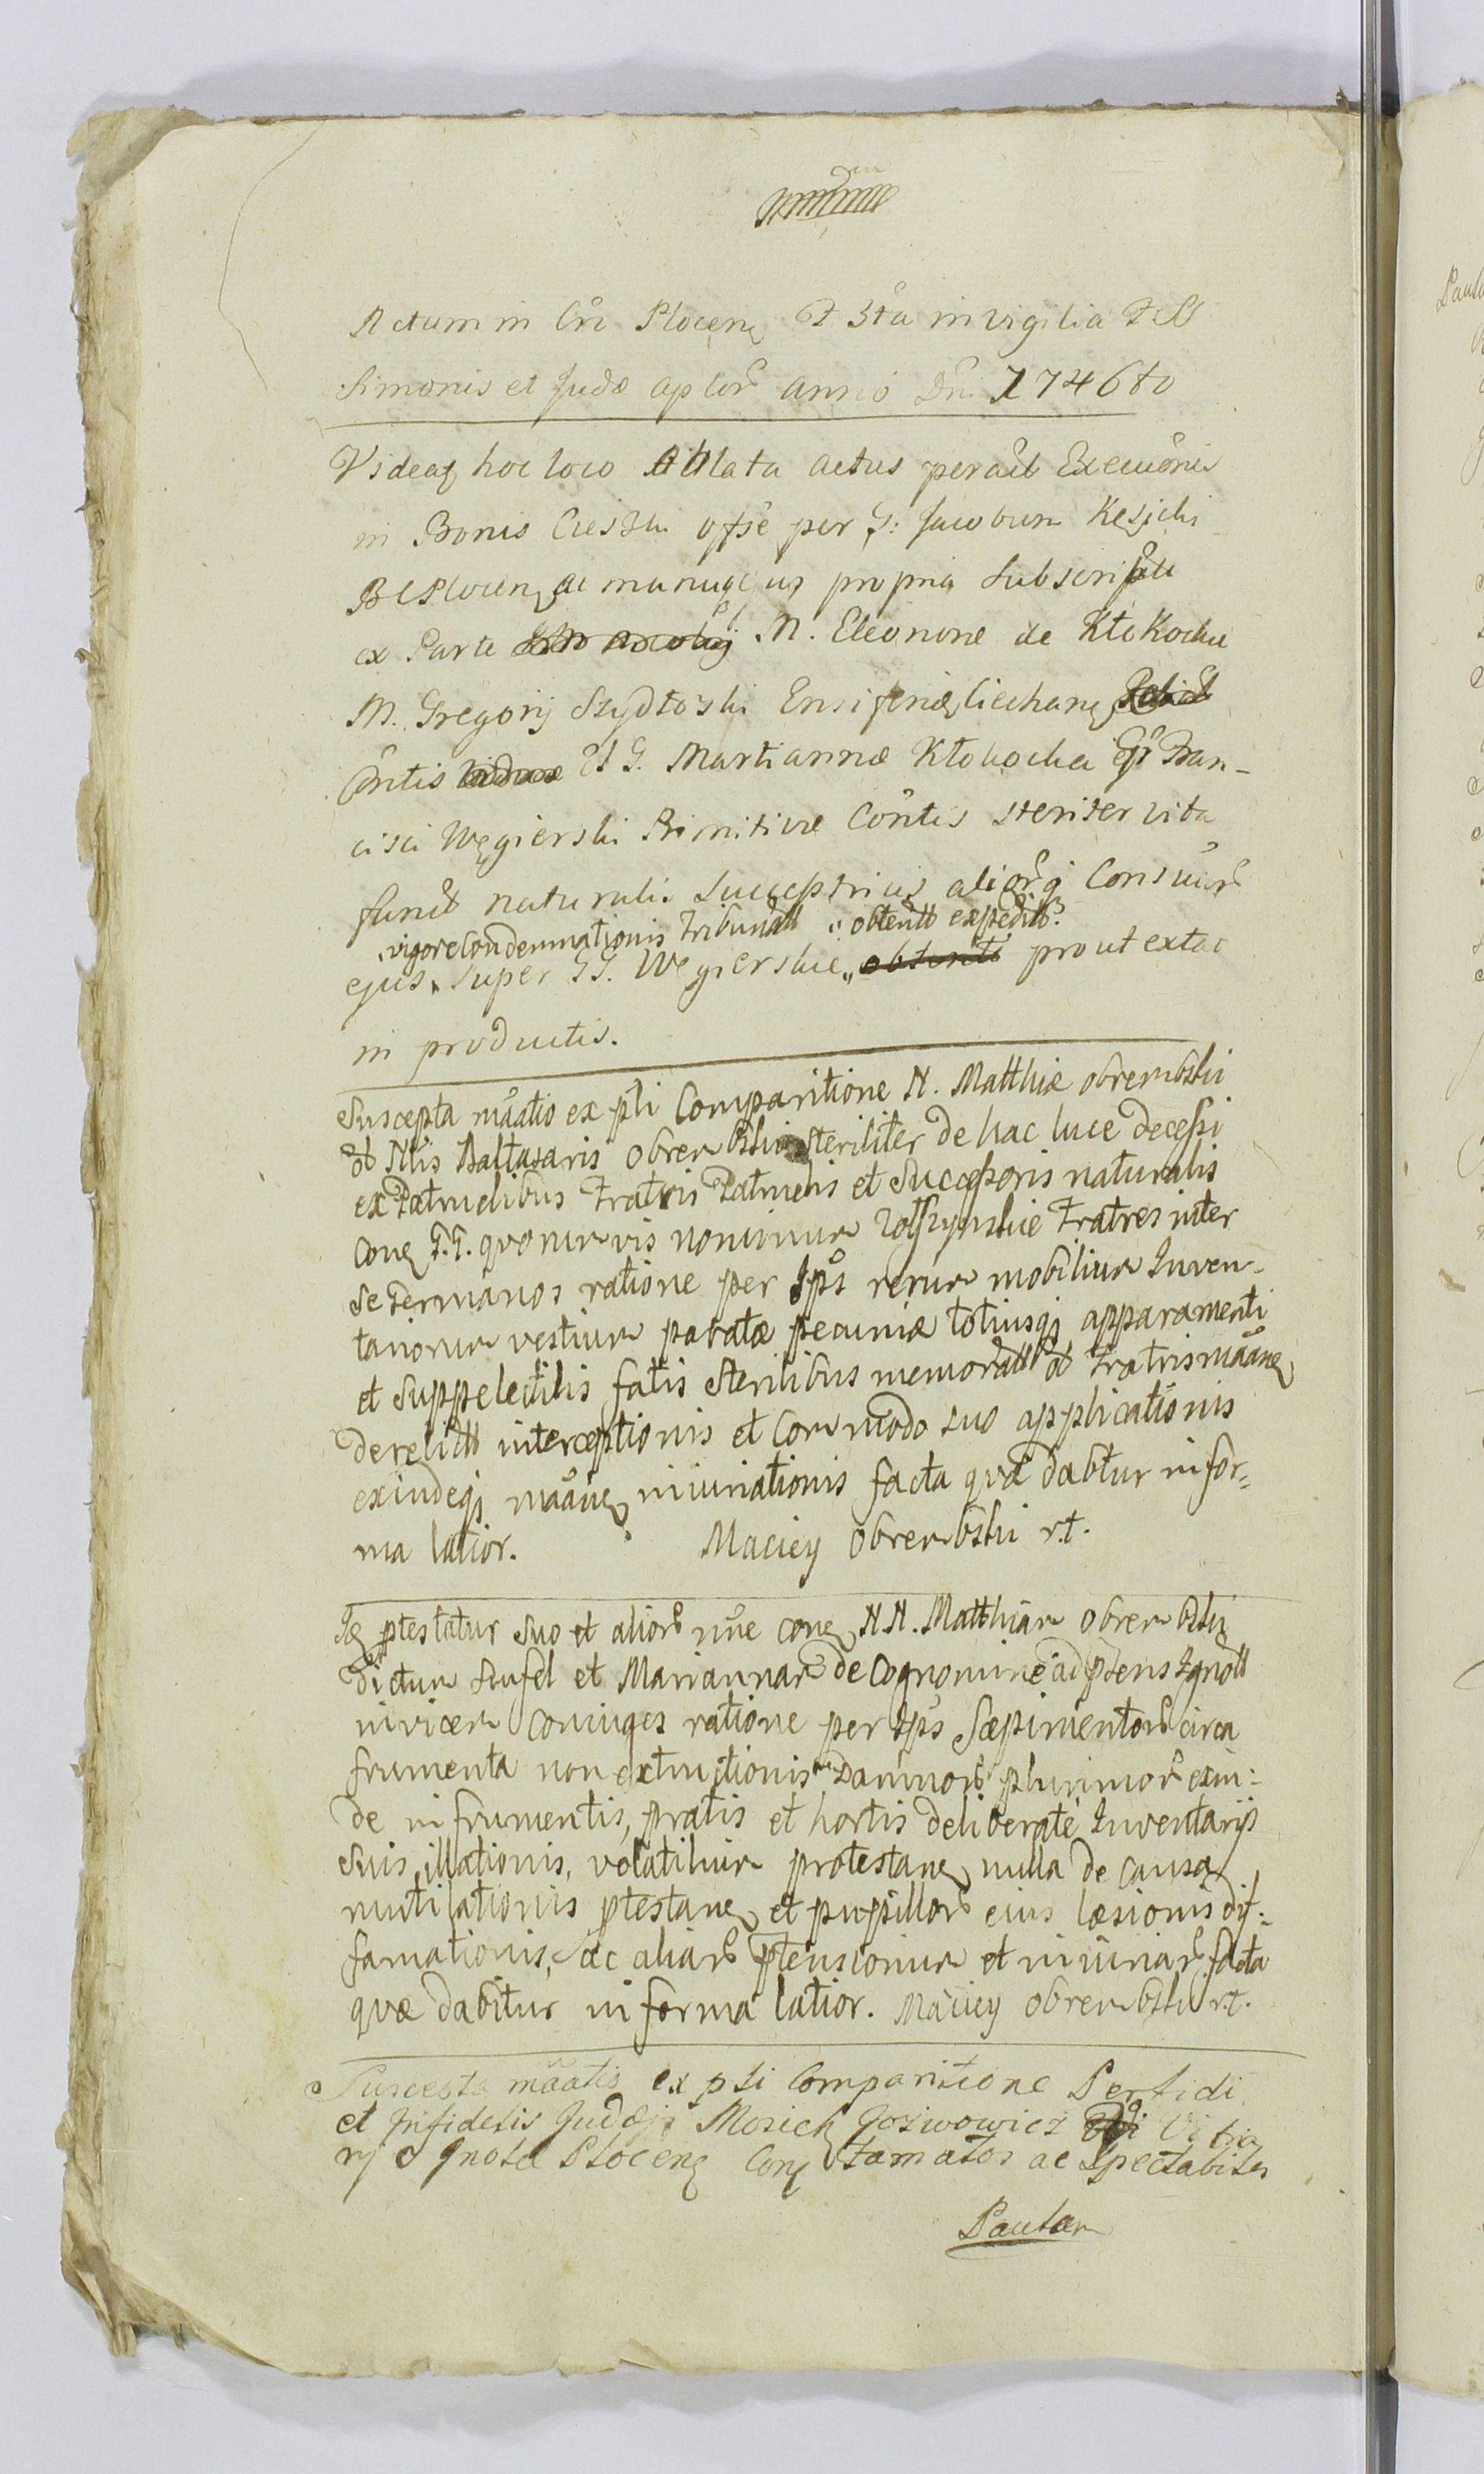 Actum in Cri Plocen F 5ta in vigilia F SS
Simonis et Judæ aplor anno Dni 1746to
Videat hoc loco Ablata actus peract Execuonis
in Bonis Ciesz​ki offse per G: Jacobum Kesicki
BCPlocen ac manu ejus propria subscript
ex Parte M. Eleonoræ de Kłokockie
M. Gregorij Szydłoski Ensiferi Ciechan
Contis Et G. Martiannæ Kłokocka G Fran-
cisci Węgierski Primitivæ Contis steriter vita
funct naturalis succeptricis alior q Consuor
vigore Condemnationis Tribunall obtentt expeditt
ejus super GG. Węgierskie prout extat
in productis.
Suscepta māatio ex pti Comparitione N. Matthiæ obrembski
ob Nlis Baltasaris obrembski steriliter de hac luce decessi
ex Patruelibus Fratris Patruelis et Successoris naturalis
Con G.G. quorumvis nominum Rosszynskie Fratres inter
se Germanos ratione per Ips rerum mobilium Inven-
tariorum vestium paratæ pecuniæ totiusq apparamenti
et suppelectilis fatis sterilibus memoratt ob Fratris māan
derelictt interceptionis et commodo suo applicationis
exindeq māan iniuriationis facta quæ dabtur in for-
ma latior. Maciey obrembski rt.
Id ptestatur suo et alior nne con N.N. Matthiam obrembski
dictum Szufel et Mariannam de Cognomine ad ptens Ignott
invicem coniuges ratione per Ips Sæpimentor circa
frumenta non extructionis Damnor plurimor exin-
de in frumentis, pratis et hortis deliberate Inventarijs
suis illationis, volatilium protestan nulla de causa
mutilationis ptestan et pupillor eius læsionis dif-
famationis, ac aliar ptensionum et iniuriar facta
quæ dabitur in forma latior. Maciey obrembski rt.
Suscepta māatio ex pti Comparitione Perfidi
et Infidelis Judæj Mosiek Jozwowicz
rij Incolæ Plocen Con Famatos ac Spectabiles
Paulum